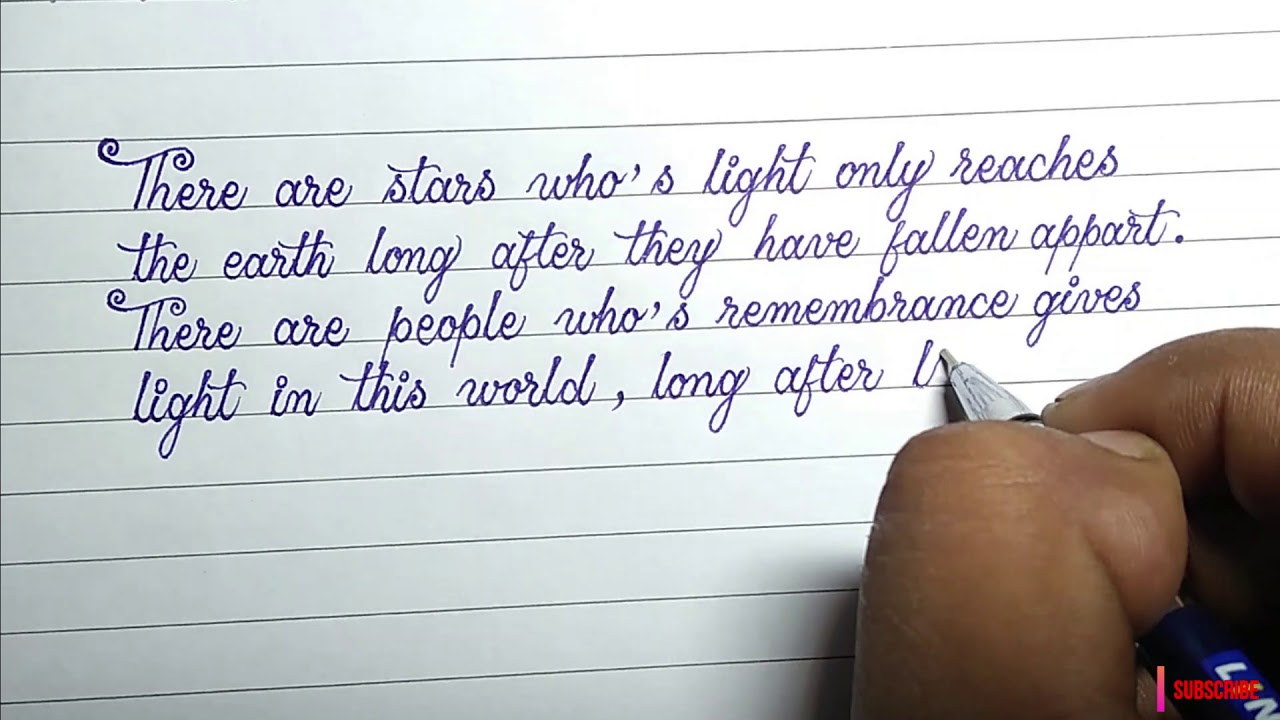 There are stars who's light only reaches
the earth long after they have fallen appart.
There are people who's remembrance gives
light in this world, long after
SUBSCRIBE